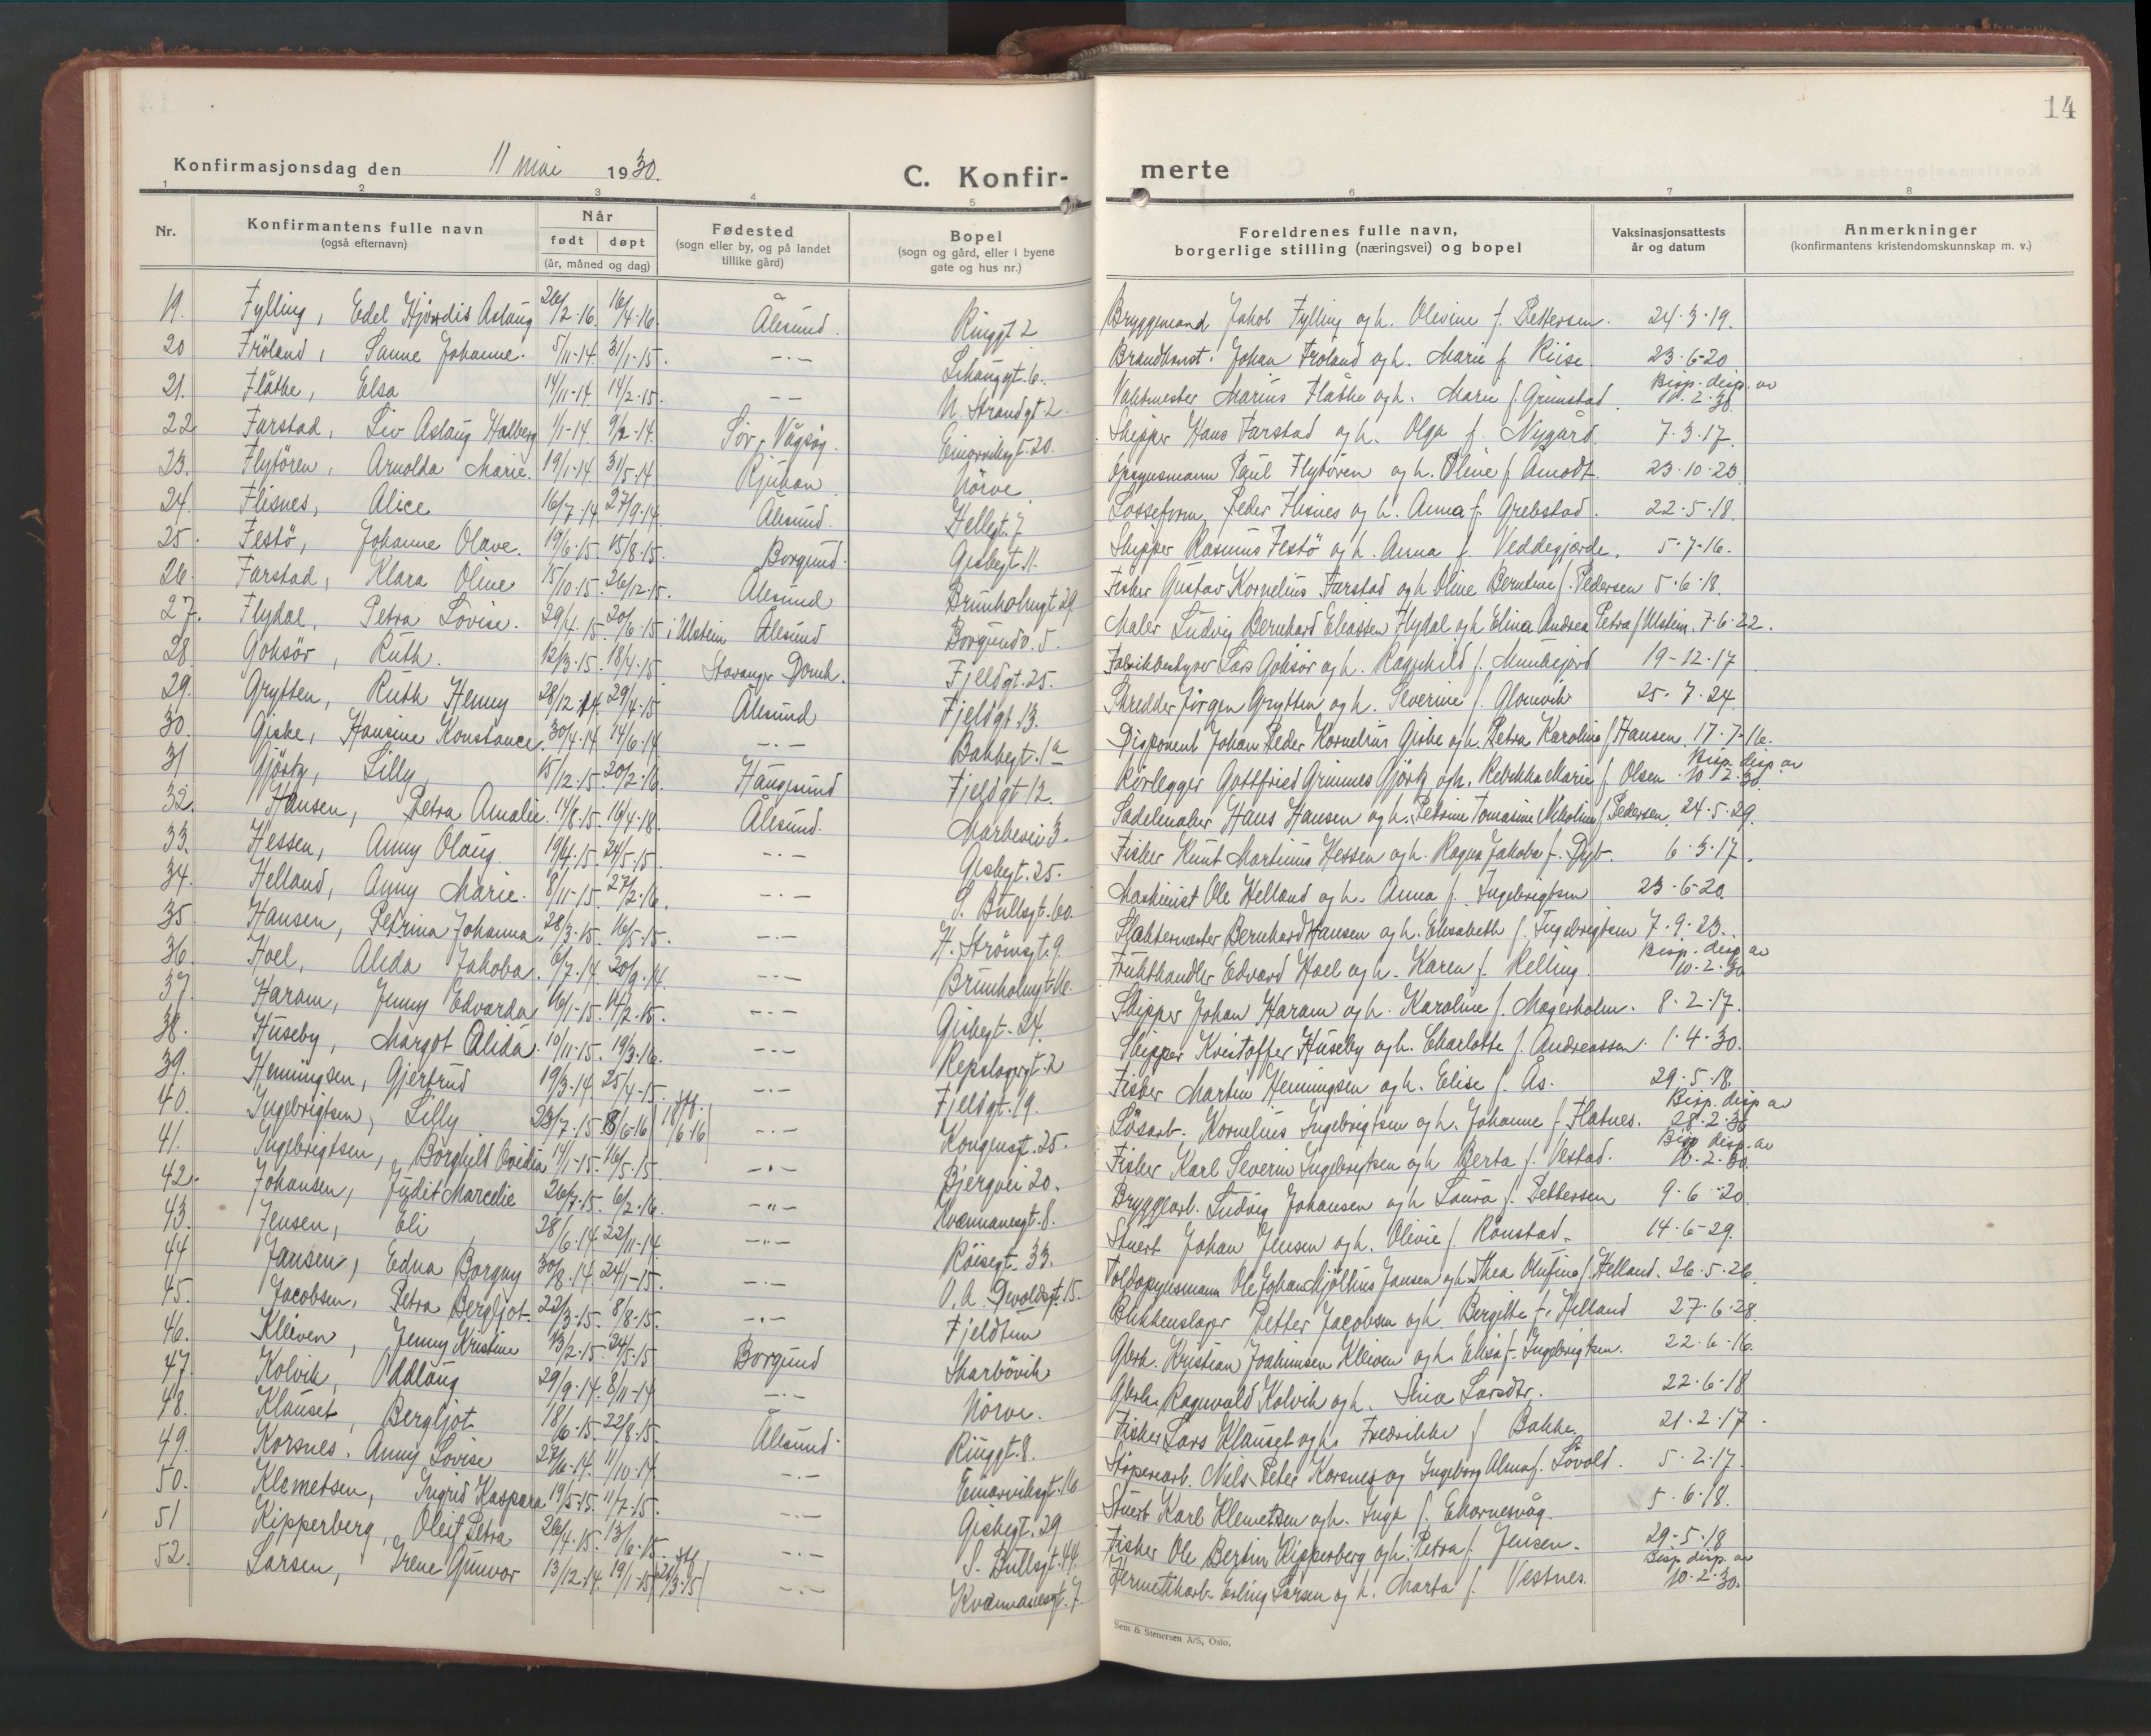 14
Konfirmasjonsdag den 11 mai 1930.
C. Konfir-
merte
1 2 3 4 5 6 7 8
Nr.
Konfirmantens fulle navn
(også efternavn)
Når
født døpt
(år, måned og dag)
Fødested
(sogn eller by, og på landet
tillike gård)
Bopel
(sogn og gård, eller i byene
gate og hus nr.)
Foreldrenes fulle navn,
borgerlige stilling (næringsvei) og bopel
Vaksinasjonsattests
år og datum
Anmerkninger
(konfirmantens kristendomskunnskap m. v.)
19. Fylling, Edel Hjørdis Aslaug 26/2-16. 16/4-16. Ålesund. Ringgt 2 Bryggemand Jakob Fylling og h. Olevine f. Pettersen. 24-3-19.
20 Fröland, Sanne Johanne. 5/11-14. 31/1-15. -"- Lihauggt. 6. Brandkonst. Johan Fröland og h. Marie f. Riise. 23-6-20
21. Flåthe, Elsa 14/11-14. 14/2-15. -- N. Strandgt 2. Vaktmester Marius Flåthe og h. Marie f. Grimstad. Bisp. disp. av 10.2.30.
22 Farstad, Liv Aslaug Halberg 1/1-14. 9/2-14. Sör-Vågsöy. Einarvikgt. 20. Skipper Hans Farstad og h. Olga f. Nygård. 7-3-17.
23. Flytören, Arnolda Marie. 19/1-14. 31/5-14 Rjukan Nörve. Opsynsmann Paul Flytören og h. Oline f. Åmodt. 23-10-23
24. Flisnes, Alice 16/7-14. 27/9-14. Ålesund. Hellegt. 7 Losseform. Peder Flisnes og h. Anna f. Grebstad. 22-5-18.
25. Festö, Johanne Olave. 19/6-15. 15/8-15. Borgund. Giskegt. 11. Skipper Rasmus Festö og h. Anna f. Veddegjærde. 5-7-16.
26. Farstad, Klara Oline 15/10-15. 26/12-15. Ålesund Brunholmgt 29 Fisker Gustav Kornelius Farstad og h. Oline Berntine f. Pedersen 5-6-18.
27. Flydal, Petra Lovise. 29/4-15. 20/6-15 i Ulstein Ålesund Borgundv. 5. Maler Ludvig Bernhard Eliassen Flydal og h. Elina Andrea Petra f. Ulstein. 7-6-22.
28 Goksör, Ruth. 12/3-15. 18/4-15. Stavanger Domk. Fjeldgt. 25. Fabrikbestyrer Lars Goksör og h. Ragnhild f. Munkejord 19-12-17
29. Grytten, Ruth Henny 28/12-14. 29/4-15 Ålesund Fjeldgt. 13. Skredder Jörgen Grytten og h. Severine f. Glomvik 25-7-24.
30. Giske, Hansine Konstance. 30/4-14. 14/6-14 -"- Bakkegt. 1a Disponent Johan Peder Kornelius Giske og h. Petra Karoline f. Hansen. 17-7-16.
31 Gjörtz, Lilly, 15/12-15. 20/2-16. Haugesund Fjeldgt 12. Rörlegger Gottfried Grimnes Gjörtz og h. Rebekka Marie f. Olsen. Bisp. disp. av 10-2-30.
32. Hansen, Petra Amalie. 14/8-15. 16/4-18. Ålesund. Markevei 3. Sadelmaker Hans Hansen og h. Petrine Tomasine Nikoline f. Pedersen. 24-5-29.
33. Hessen, Anny Olaug. 19/4-15. 24/5-15. -"- Giskegt. 25. Fisker Knut Martinus Hessen og h. Ragna Jakoba f. Dyb. 6-3-17.
34. Helland, Anny Marie. 8/11-15. 27/2-16. -"- S. Bullsgt. 60. Maskinist Ole Helland og h. Anna f. Ingebrigtsen 23-6-20.
35 Hansen, Petrina Johanna. 28/3-15. 16/5-15. -"- H. Strömsgt. 9. Slaktermester Bernhard Hansen og h. Elisabeth f. Ingebrigtsen 7-9-23.
36. Hoel, Alida Jakoba. 6/7-14. 20/9-14. -"- Brunholmgt 16. Frukthandler Edvard Hoel og h. Karen f. Relling. Bisp. disp. av 10-2-30
37. Haram, Jenny Edvarda 16/1-15. 14/2-15. -"- Giskegt. 24. Skipper Johan Haram og h. Karoline f. Magerholm. 8-2-17.
38. Huseby, Margot Alida. 10/11-15. 19/3-16. -"- Repslagergt. 2 Skipper Kristoffer Huseby og h. Charlotte f. Andreassen. 1-4-30.
39. Henningsen, Gjertrud 19/3-14. 25/4-15. -"- Fjeldgt. 19. Fisker Martin Henningsen og h. Elise f. Ås. 29-5-18.
40. Ingebrigtsen, Lilly 23/7-15. 18/6-16 stf. 18/6-16 -"- Kongensgt. 25. Lösarb. Kornelius Ingebrigtsen og h. Johanne f. Flatnes. Bisp. disp av 28.2.30
41. Ingebrigtsen, Borghild Ovidia 14/1-15. 16/5-15. -"- Bjergvei 20. Fisker Karl Severin Ingebrigtsen og h. Berta f. Vestad. Bisp disp. av 10.2.30.
42. Johansen, Judit Marcelie 26/7-15. 6/2-16. -"- Kvennanesgt. 8. Bryggearb. Ludvig Johansen og h. Laura f. Pettersen 9-6-20
43. Jensen, Eli 28/6-14. 22/11-14 -"- Röisegt. 33. Stuert Johan Jensen og h. Olivie f. Rönstad. 14-6-29.
44 Jansen, Edna Borgny 30/8-14. 24/1-15. -"- O. A. Devoldsgt. 15. Toldopsynsmann Ole Johan Mjöltnus Jansen og h. Thea Olufine f. Helland. 26-5-26.
45. Jacobsen, Petra Bergljot. 22/3-15. 8/8-15. -"- Fjeldtun Blikkenslager Petter Jacobsen og h. Bergitte f. Helland 27-6-28.
46. Kleiven, Jenny Kristine 13/2-15. 24/5-15 Borgund Skarbövik Gbrk. Kristian Joakimsen Kleiven og h. Elisa f. Ingebrigtsen. 22-6-16.
47. Kolvik, Oddlaug 29/9-14. 8/11-14 -"- Nörve. Gbrk. Ragnvald Kolvik og h. Sina Larsdtr. 22-6-18
48. Klauset, Bergljot 18/6-15. 22/8-15. Ålesund Ringgt. 8. Fisker Lars Klauset og h. Fredrikke f. Bakke 21-2-17.
49. Korsnes. Anny Lovise 27/6-14. 11/10-14 -"- Einarvikgt. 16 Stöperiarb. Nils Peter Korsnes og Ingeborg Alma f. Lövold. 5-2-17.
50. Klemetsen, Ingrid Kaspara 19/5-15. 11/7-15. -"- Giskegt. 29 Stuert Karl Klemetsen og h. Inga f. Ekornesvåg. 5-6-18.
51 Kipperberg, Oleif Petra 26/4-15. 13/6-15. -"- S. Bullsgt. 44. Fisker Ole Bertin Kipperberg og h. Petra f. Jensen. 29-5-18
52. Larsen, Irene Gunvor 13/12-14. 19/1-15 stf. 21/3-15 -"- Kvennanesgt. 7. Hermetikarb. Erling Larsen og h. Marta f. Vestnes. Bisp. disp. av 10-2-30.
Sem & Stenersen A/S, Oslo.